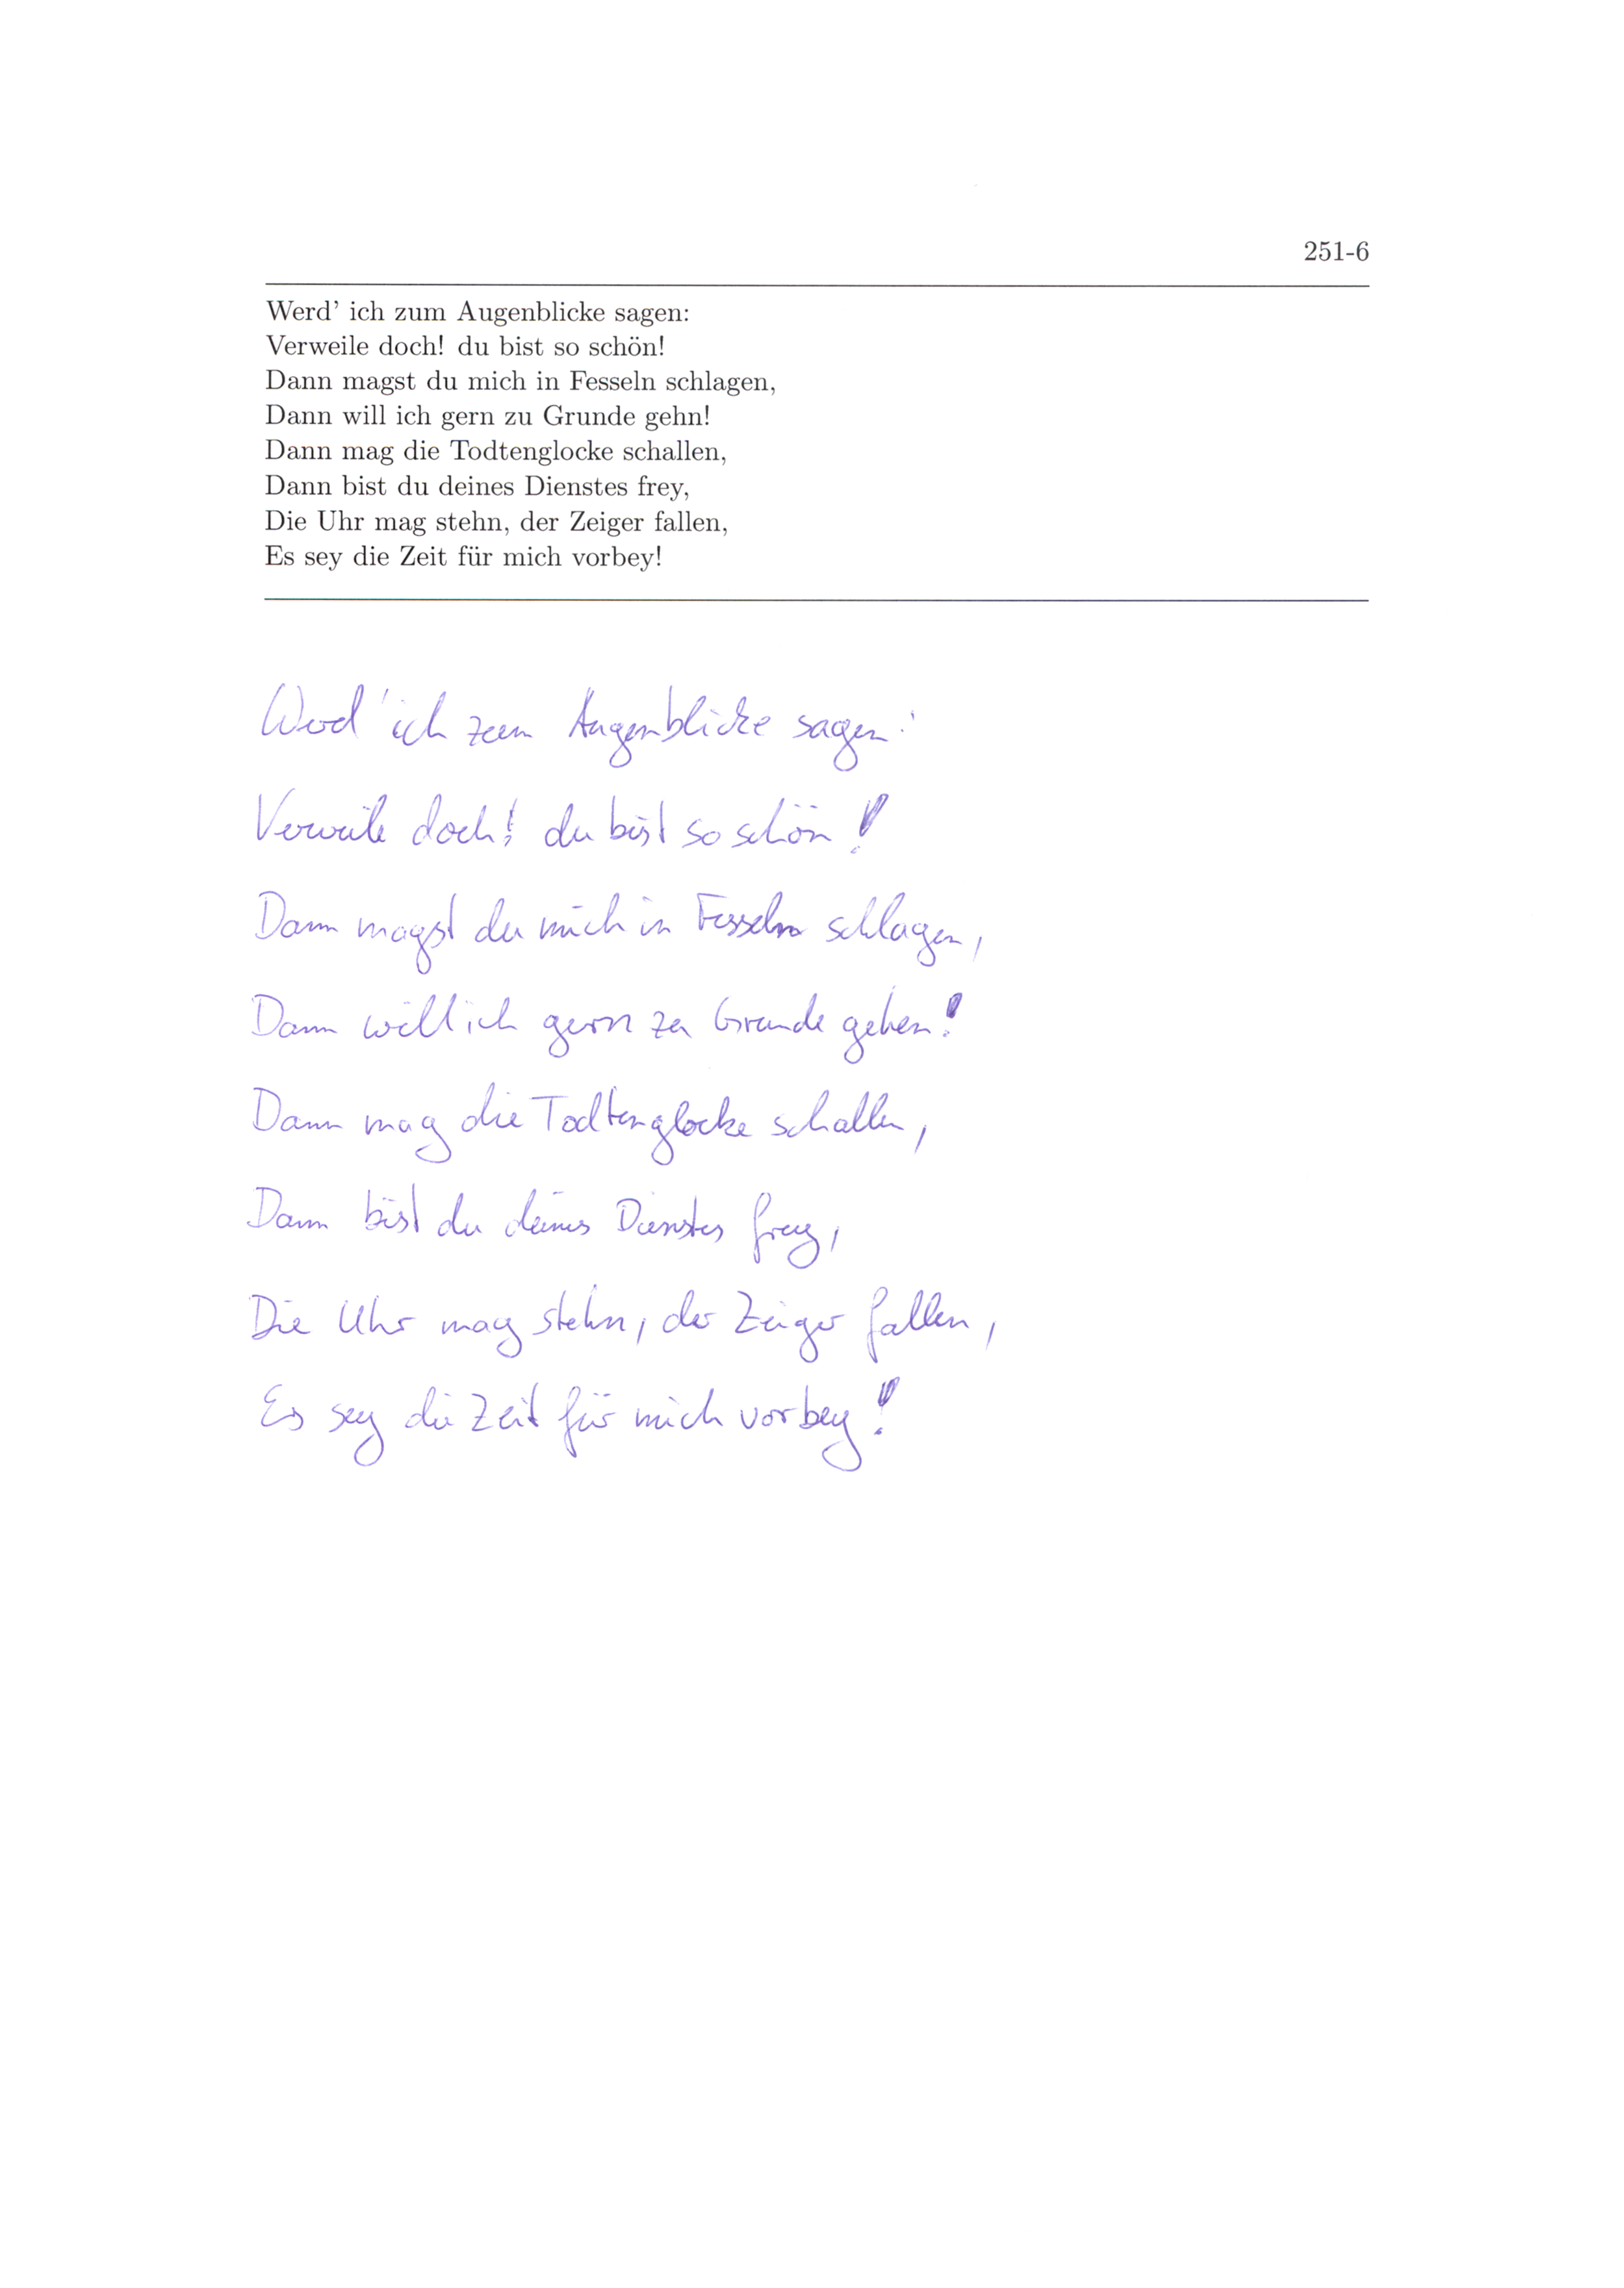 251-6
Werd' ich zum Augenblicke sagen:
Verweile doch! du bist so schön!
Dann magst du mich in Fesseln schlagen,
Dann will ich gern zu Grunde gehn!
Dann mag die Todtenglocke schallen,
Dann bist du deines Dienstes frey,
Die Uhr mag stehn, der Zeiger fallen,
Es sey die Zeit für mich vorbey!
Werd' ich zum Augenblicke sagen:
Verweile doch! du bist so schön!
Dann magst du mich in Fesseln schlagen,
Dann will ich gern zu Grunde gehen!
Dann mag die Todtenglocke schallen,
Dann bist du deines Dienstes frey,
Die Uhr mag stehn, der Zeiger fallen,
Es sey die Zeit für mich vorbey!